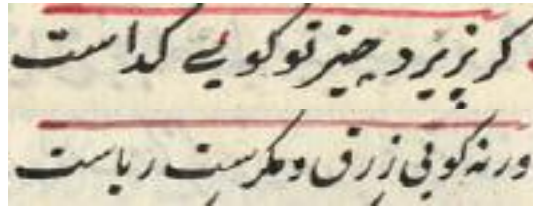 گر پزیرد چیز تو گویی گداست
ورنه گویی زرق و مکرست ریاست